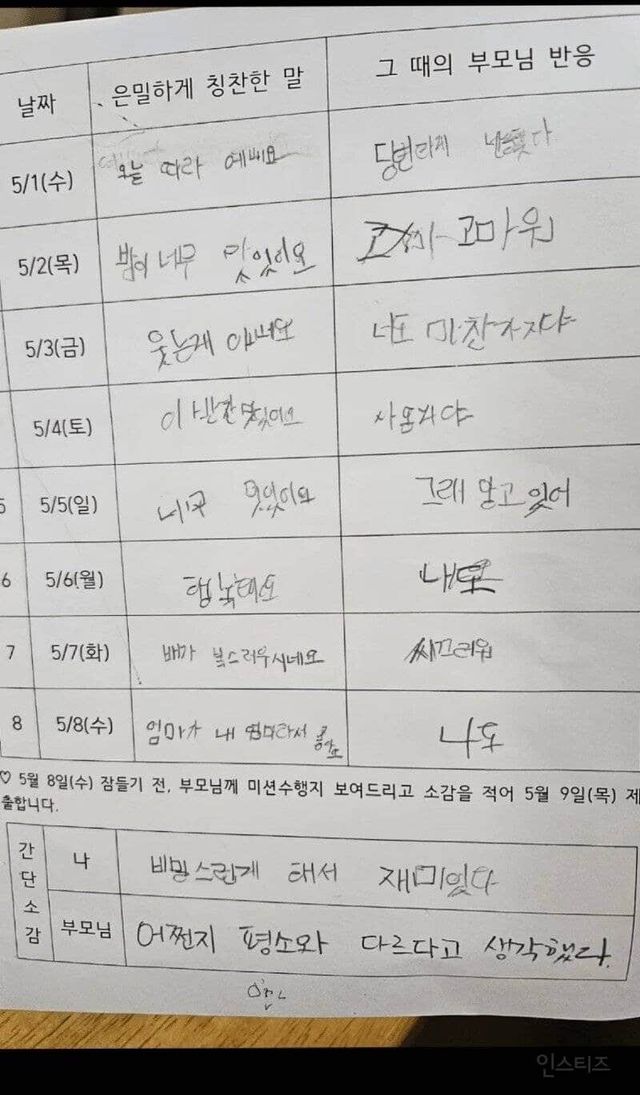 날짜 은밀하게 칭찬한 말 그 때의 부모님 반응
5/1(수) 오늘 따라 예뻐요 당연하게
5/2(목) 밥이 너무 맛있어요 고마워
5/3(금) 웃는게 너도 마찬가지야
5/4(토) 이 반찬 맛있어요
5 5/5(일) 너무 멋있어요 그래 알고 있어
6 5/6(월)
7 5/7(화) 배가 복스러우시네요 씨끄러워
8 5/8(수) 엄마가 내 엄마라서 좋아요 나도
♡ 5월 8일(수) 잠들기 전, 부모님께 미션수행지 보여드리고 소감을 적어 5월 9일(목) 제
출합니다.
간단소감
나 비밀스럽게 해서 재미있다
부모님 어쩐지 평소와 다르다고 생각했다.
인스티즈